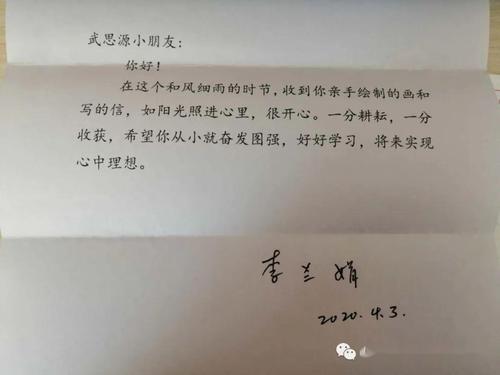 武思源小朋友：
你好！
在这个和风细雨的时节，收到你亲手绘制的画和
写的信，如阳光照进心里，很开心。一分耕耘，一分
收获，希望你从小就奋发图强，好好学习，将来实现
心中理想。
李兰娟
2020.4.3.